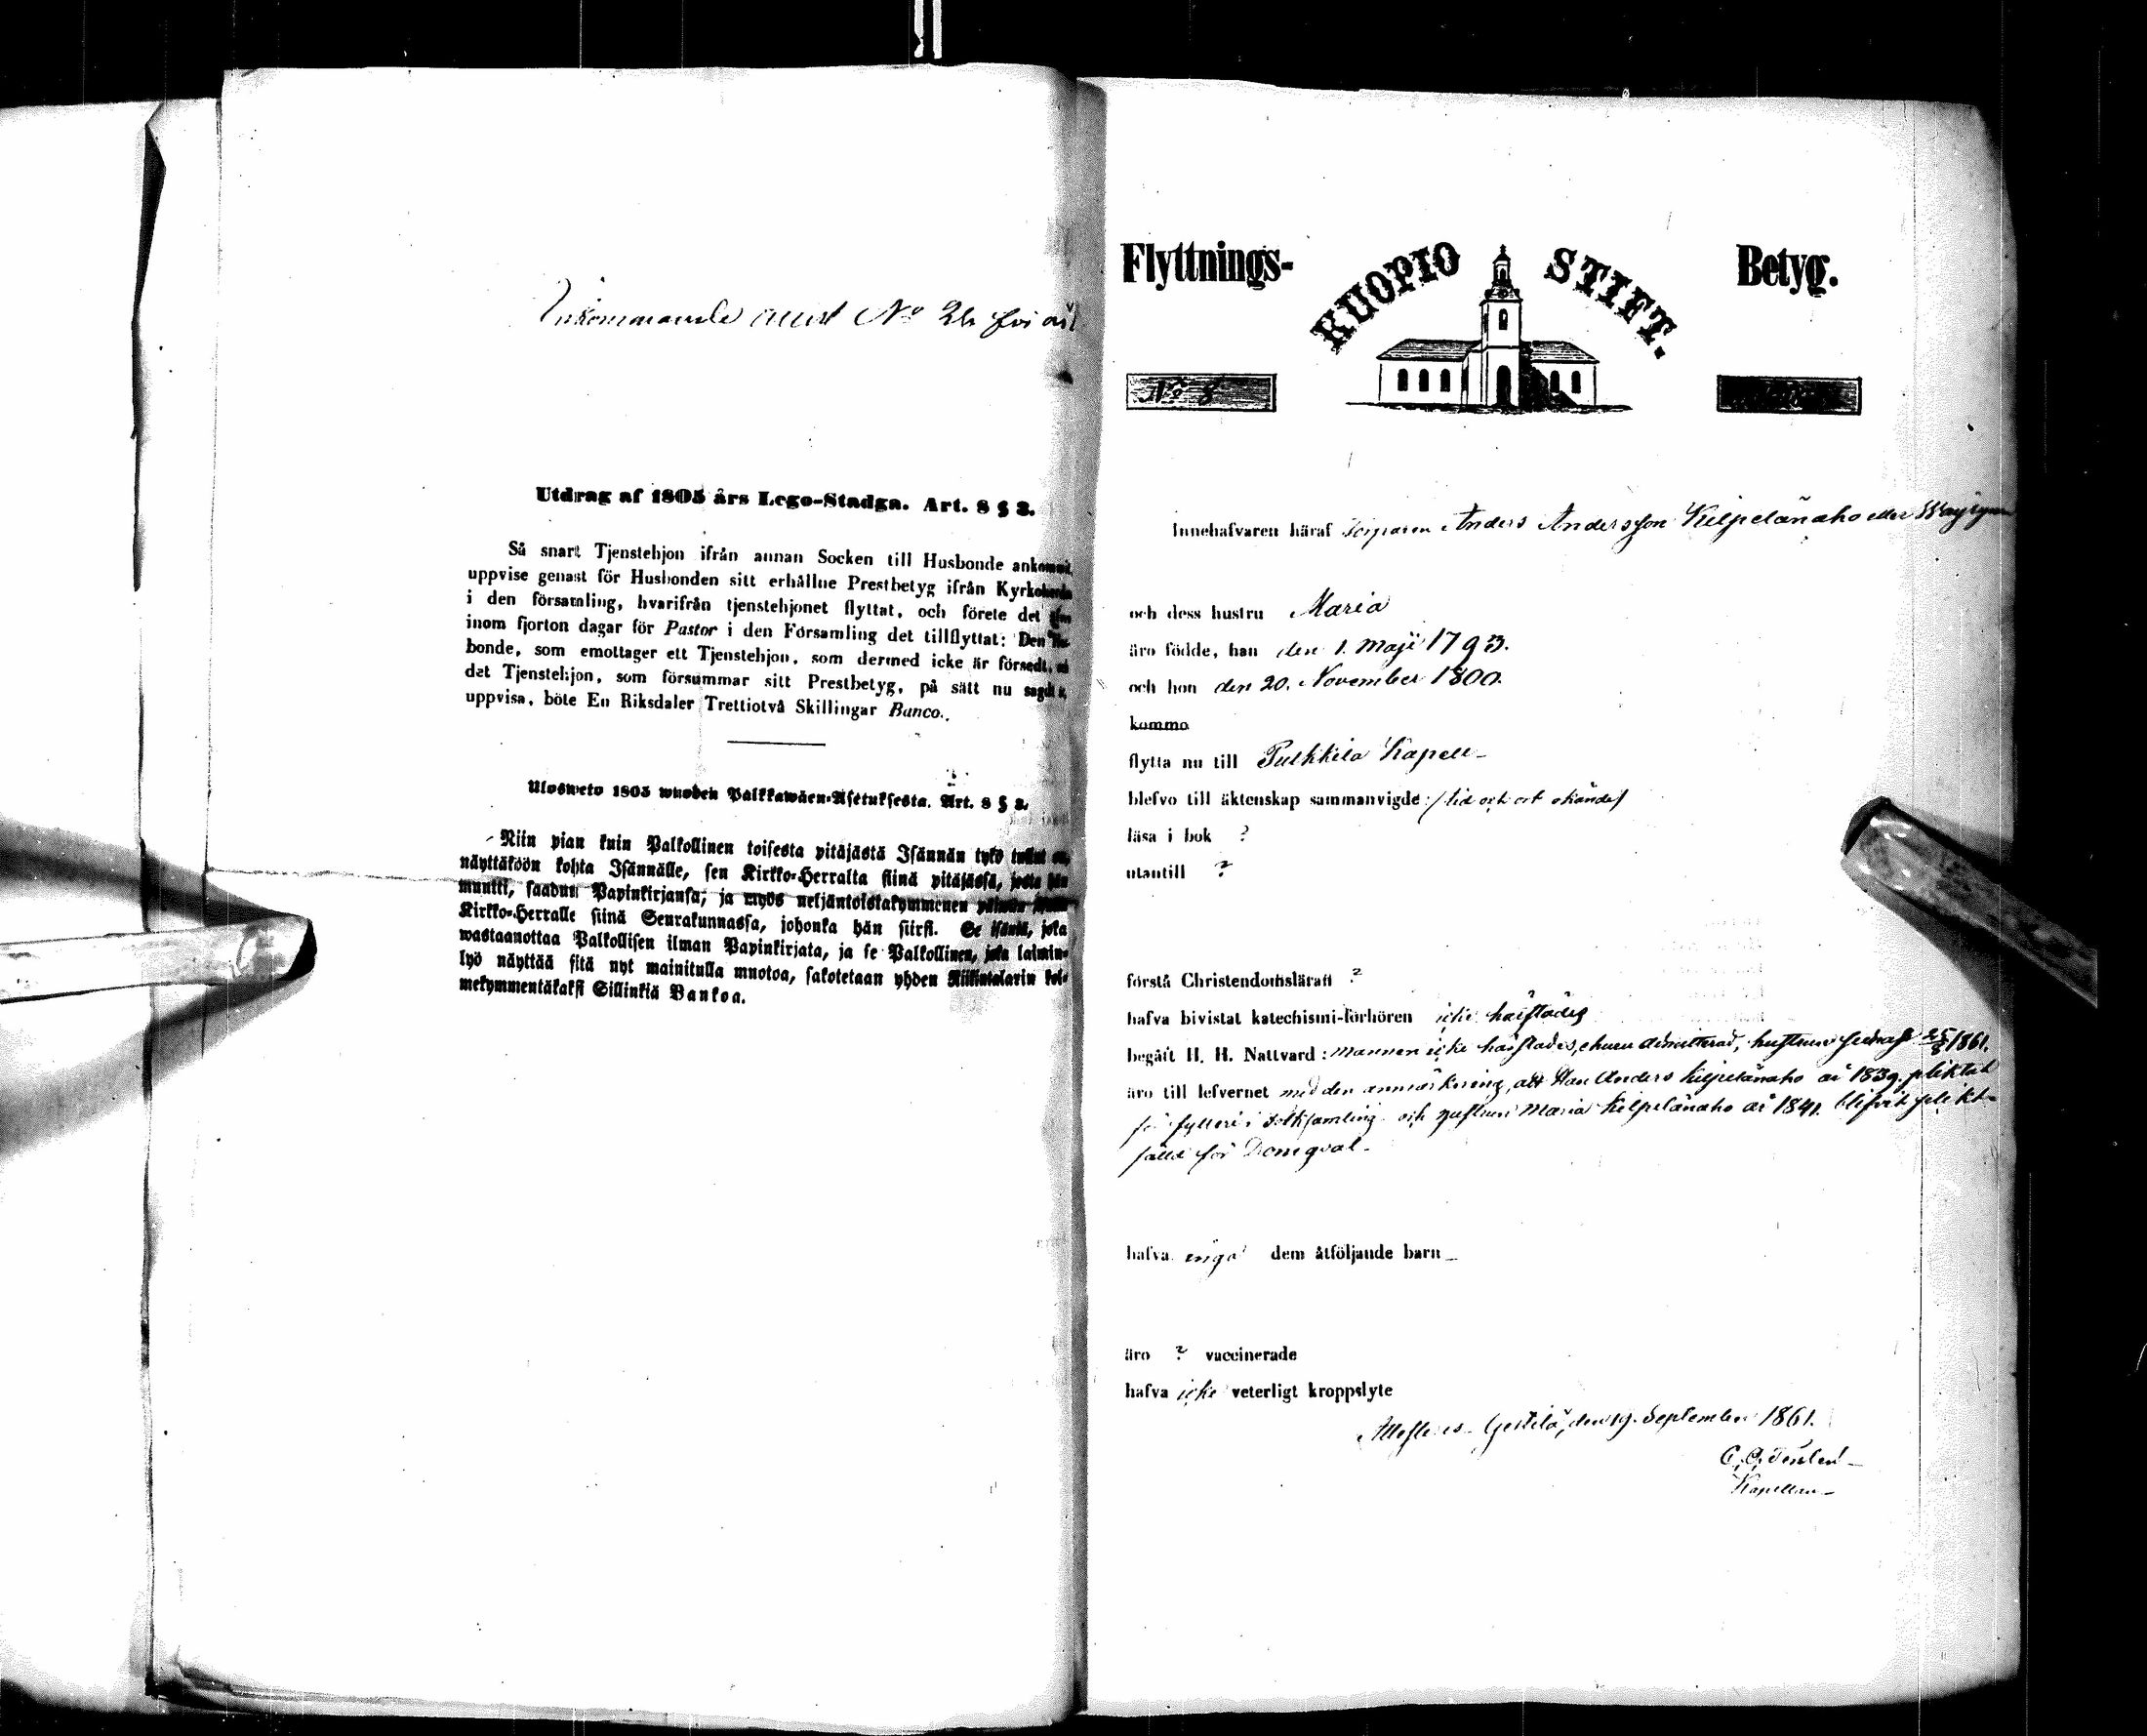 Inkommande attest No 26 för år
Utdrag af 1805 års Lego-Stadga. Art. 8 § 3.
Så snart Tjenstehjon ifrån annan Socken till Husbonde ankommit,
uppvise genast för Husbonden sitt erhållne Prestbetyg ifrån Kyrkoherden
i den församling, hvarifrån tjenstehjonet flyttat, och förete det
inom fjorton dagar för Pastor i den Församling det tillflyttat: Den Hus-
bonde, som emottager ett Tjenstehjon, som dermed icke är försedt,
det Tjenstehjon, som försummar sitt Prestbetyg, på sätt nu sagdt är,
uppvisa, böte En Riksdaler Trettiotvå Skillingar Banco.
Ulosweto 1805 wuoden Palkkawäen-Asetuksesta. Art. 8 § 3.
Niin pian kuin Palkollinen toisesta pitäjästä Isännän tykö tullut on,
näyttäköön kohta Isännälle, sen Kirkko-Herralta siinä pitäjässä, josta hän
muutti, saadun Papinkirjansa; ja myös neljäntoistakymmenen päiwän
Kirkko-Herralle siinä Seurakunnassa, johonka hän siirsi. Se isäntä, joka
wastaanottaa Palkollisen ilman Papinkirjata, ja se Palkollinen, joka laimin-
lyö näyttää sitä nyt mainitulla muotoa, sakotetaan yhden Riikintalarin kol-
mekymmentäkaksi Sillinkiä Bankoa.
Flyttnings- KUOPIO STIFT. Betyg.
No 8
Innehafvaren häraf Torparen Anders Andersson Kilpelänaho eller
och dess hustru Maria
äro födde, han den 1. Maji 1793.
och hon den 20. November 1800.
komma
flytta nu till Pulkkila Kapell
blefvo till äktenskap sammanvigde /tid och ort okände/
läsa i bok ?
utantill ?
förstå Christendomsläran ?
hafva bivistat katechismi-förhören icke härstädes
begått H. H. Nattvard: mannen icke härstädes, ehuru admitterad, hustrun sednast 25/8 1861.
äro till lefvernet med den anmärkning, att Han Anders Kilpelänaho år 1839. pliktat
för fylleri i folksamling och hustrun Maria Kilpelänaho år 1841. blifvit plikt-
fälld för Domqval.
hafva inga dem åtföljande barn
äro ? vaccinerade
hafva icke veterligt kroppslyte
Attesteras Gestilä, den 19. September 1861.
Kapellan